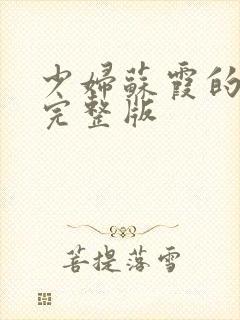 少婦蘇霞的
完整版
菩提落雪